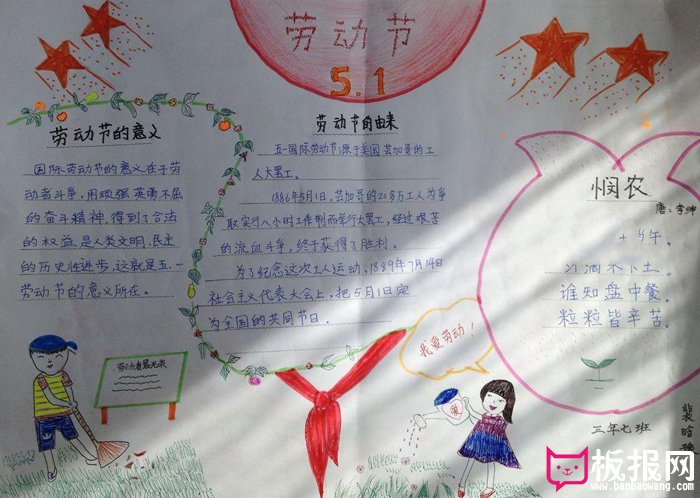 劳动节
5.1
劳动节的意义
国际劳动节的意义在于劳
动者斗争,用顽强英勇不屈
的奋斗精神,得到了合法
的权益,是人类文明、民主
的历史性进步,这就是五一
劳动节的意义所在。
劳动节的由来
五一国际劳动节源于美国芝加哥的工
人大罢工。
1886年5月1日,芝加哥的20多万工人为争
取实行八小时工作制而举行大罢工,经过艰苦
的流血斗争,终于获得了胜利。
为了纪念这次工人运动,1889年7月14日
社会主义代表大会上,把5月1日定
为全国的共同节日。
悯农
唐:李绅
午,
汗滴禾下土。
谁知盘中餐,
粒粒皆辛苦。
劳动者最光荣
我爱劳动!
爱
三年七班
裴晗
板报网
www.banbaowang.com